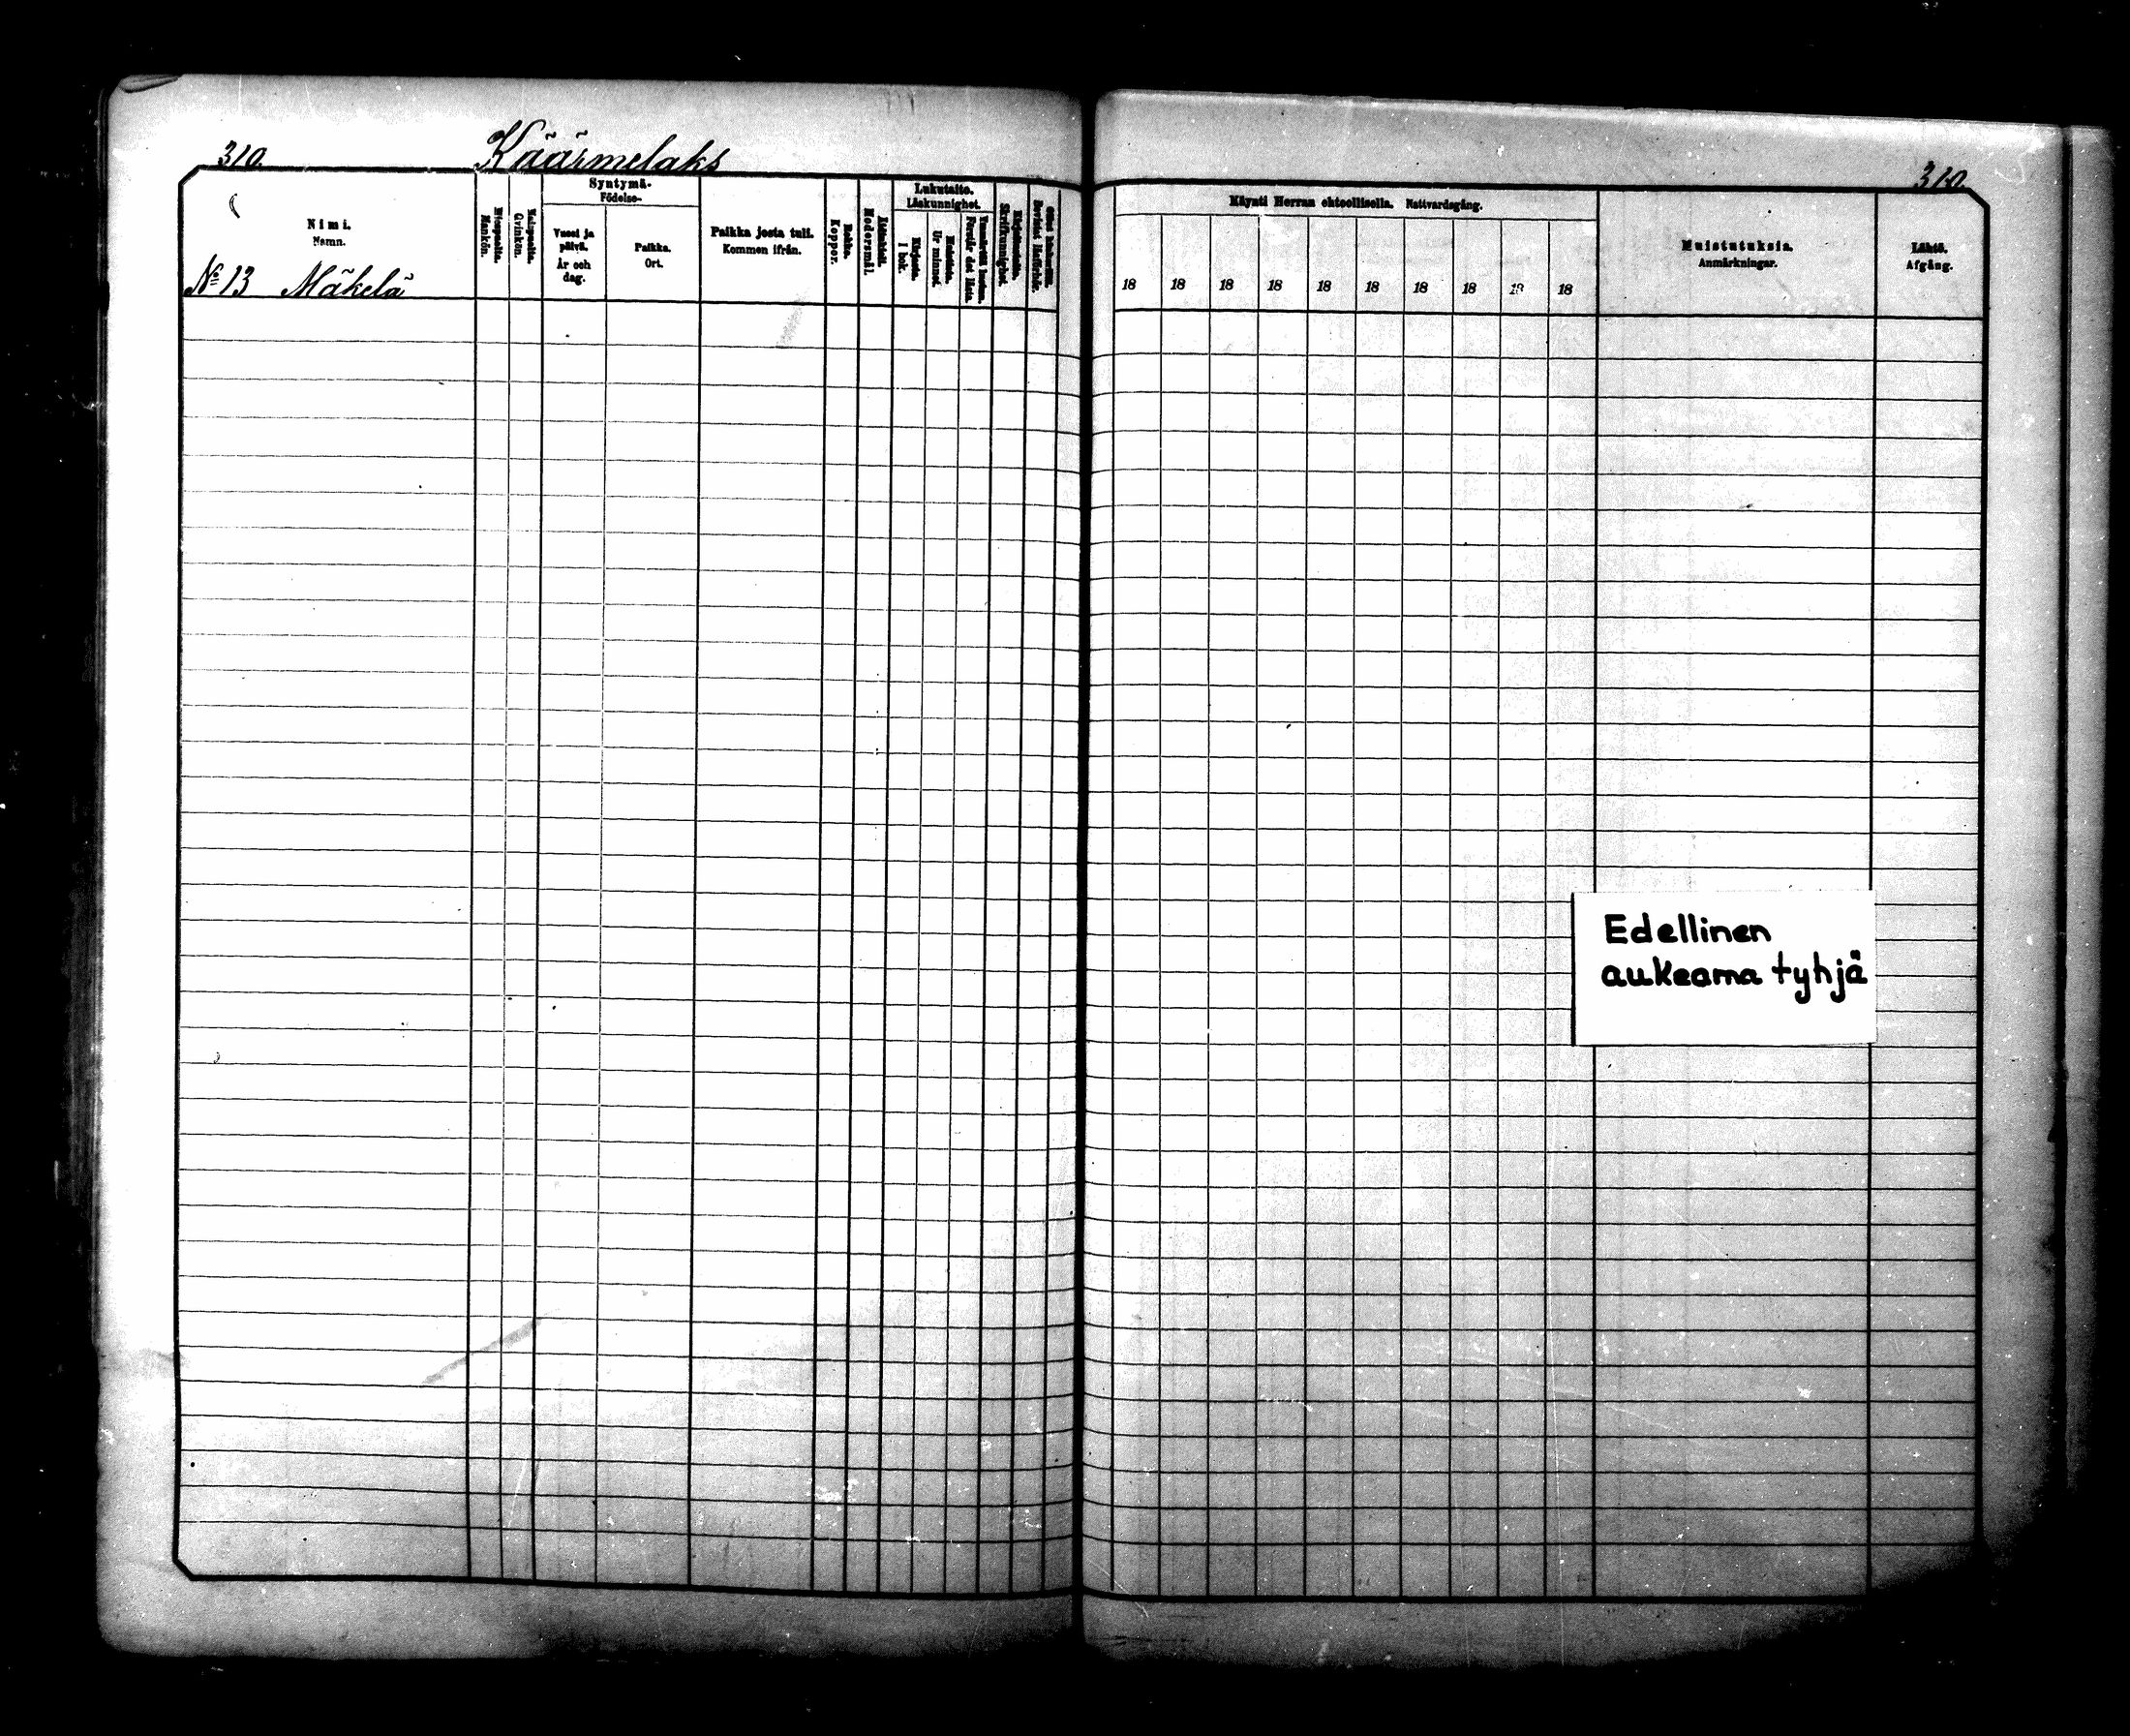 310.
Käärmelaks
310.
Nimi.
Namn.
Nº 13 Mäkelä
Miespuolia.
Mankön.
Vaimopuolia.
Qvinkön.
Syntymä-
Födelse-
Vuosi ja
päivä.
År och
dag.
Paikka.
Ort.
Paikka josta tuli.
Kommen ifrån.
Rokko.
Koppor.
Modersmål.
Lukutaito.
Läskunnighet.
Kirjasta.
I bok.
Ur minnet.
Skrifkunnighet.
Käynti Herran ehtoollisella. Nattvardsgång.
18 18 18 18 18 18 18 18 18 18
Muistutuksia.
Anmärkningar.
Lähtö.
Afgång.
Edellinen
aukeama tyhjä